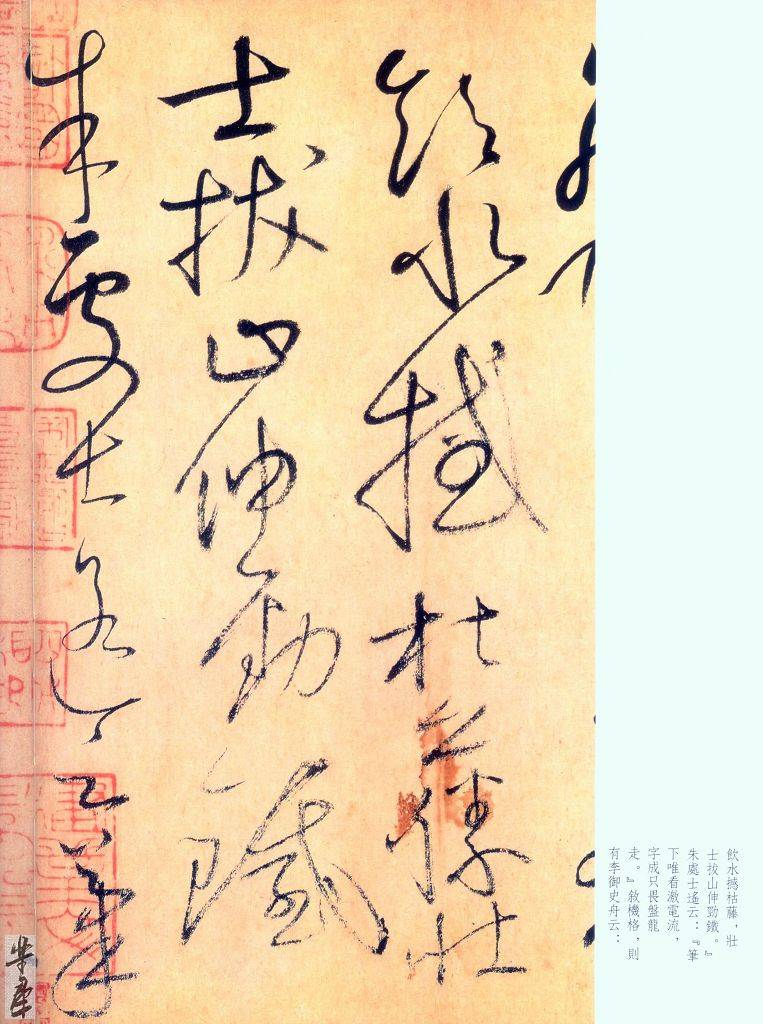 飲水撼枯藤，壯
士拔山伸勁鐵。』
朱處士遙云：『筆
下唯看激電流，
字成只畏盤龍
走。』敘機格，則
有李御史舟云：
飲水撼枯藤壯
士拔山伸勁鐵
朱處士遙云筆